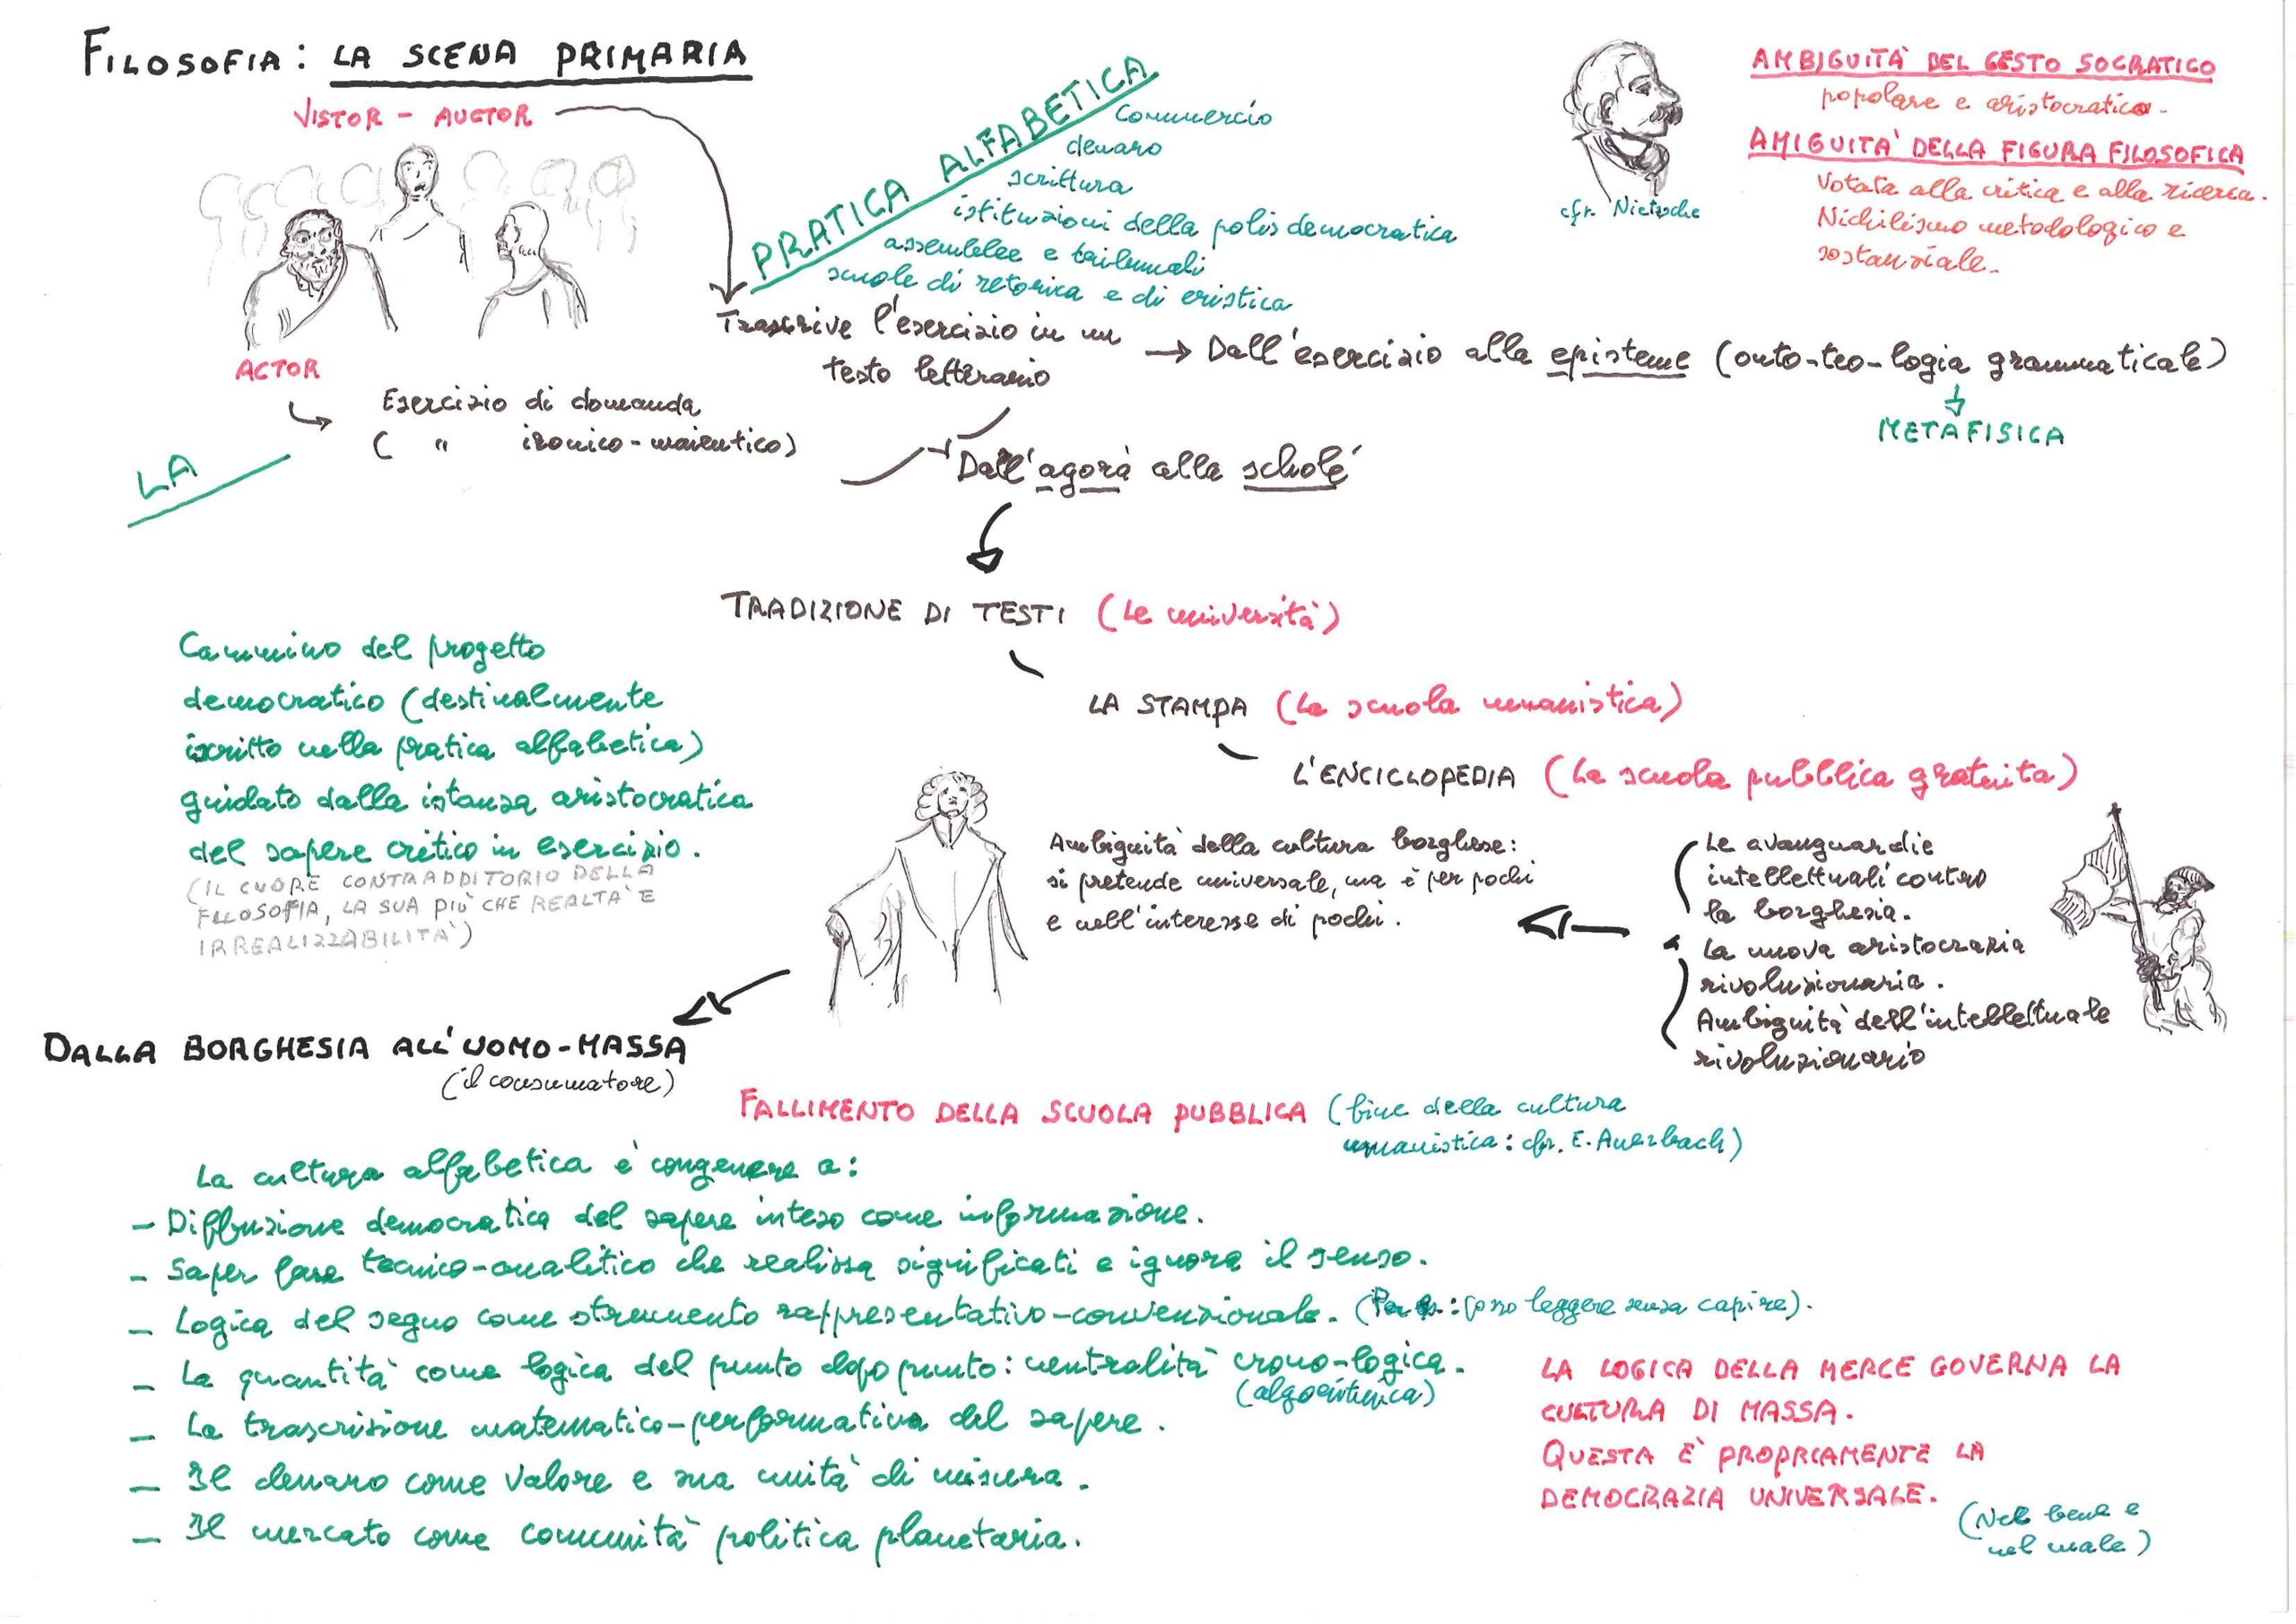 FILOSOFIA: LA SCENA PRIMARIA
VISTOR - AUCTOR
ACTOR
Esercizio di domanda
( " ironico-maieutico)
LA
PRATICA ALFABETICA
Commercio
denaro
scrittura
istituzioni della polis democratica
assemblee e tribunali
scuole di retorica e di eristica
Trascrive l'esercizio in un
testo letterario
→ Dall'esercizio alla episteme (onto-teo-logia grammaticale)
METAFISICA
Dall'agorà alla scholé
cfr. Nietzsche
AMBIGUITÀ DEL GESTO SOCRATICO
popolare e aristocratico.
AMIGUITA' DELLA FIGURA FILOSOFICA
Votata alla critica e alla ricerca.
Nichilismo metodologico e
sostanziale.
TRADIZIONE DI TESTI (Le università)
LA STAMPA (La scuola umanistica)
L'ENCICLOPEDIA (La scuola pubblica gratuita)
Cammino del progetto
democratico (destinalmente
iscritto nella pratica alfabetica)
guidato dalla istanza aristocratica
del sapere critico in esercizio.
(IL CUORE CONTRADDITORIO DELLA
FILOSOFIA, LA SUA PIÙ CHE REALTÀ E
IRREALIZZABILITÀ)
Ambiguità della cultura borghese:
si pretende universale, ma è per pochi
e nell'interesse di pochi.
Le avanguardie
intellettuali contro
la borghesia.
La nuova aristocrazia
rivoluzionaria.
Ambiguità dell'intellettuale
rivoluzionario
DALLA BORGHESIA ALL'UOMO-MASSA
(il consumatore)
FALLIMENTO DELLA SCUOLA PUBBLICA (fine della cultura
umanistica: cfr. E. Auerbach)
La cultura alfabetica è congenere a:
- Diffusione democratica del sapere inteso come informazione.
- Saper fare tecnico-analitico che realizza significati e ignora il senso.
- Logica del segno come strumento rappresentativo-convenzionale. (Per es.: posso leggere senza capire).
- La quantità come logica del punto dopo punto: centralità crono-logica.
(algoritmica)
- La trascrizione matematico-performativa del sapere.
- Il denaro come valore e sua unità di misura.
- Il mercato come comunità politica planetaria.
LA LOGICA DELLA MERCE GOVERNA LA
CULTURA DI MASSA.
QUESTA È PROPRIAMENTE LA
DEMOCRAZIA UNIVERSALE.
(Nel bene e
nel male)